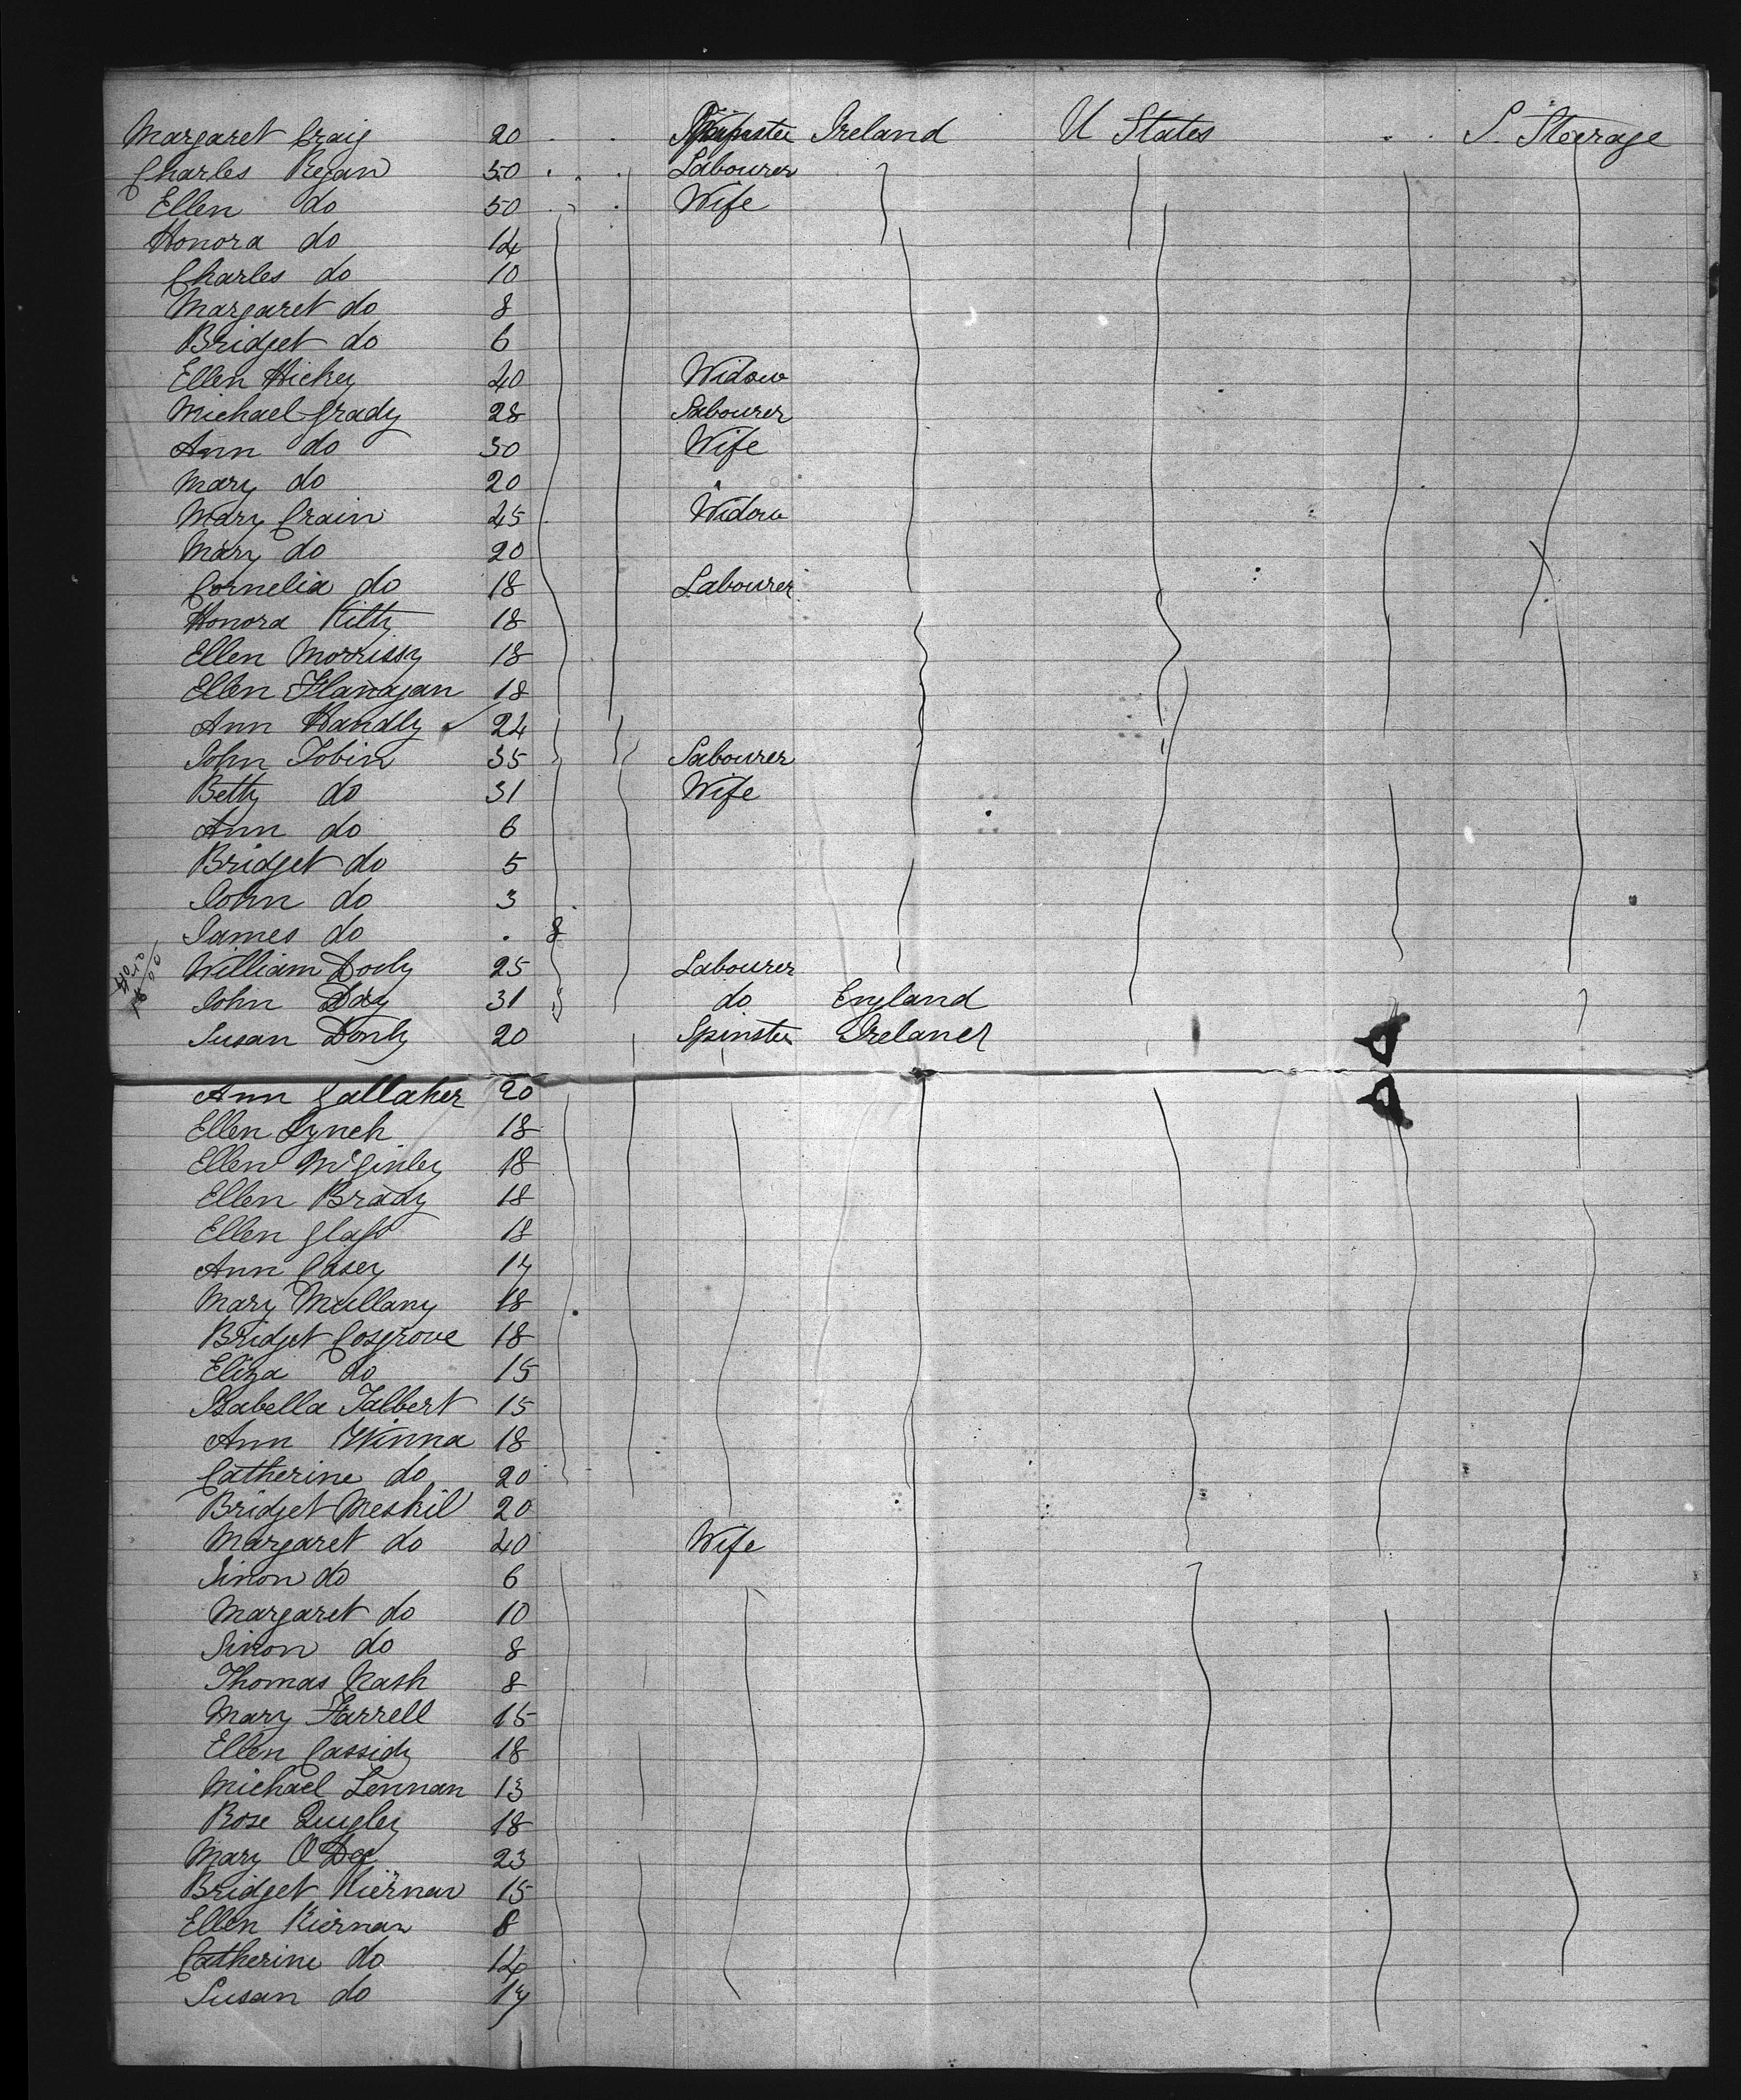 Margaret Craig 20 Spinster Ireland U States S. Steerage
Charles Regan 50 Labourer
Ellen do 50 Wife
Honora do 14
Charles do 10
Margaret do 8
Bridget do 6
Ellen Hickey 40 Widow
Michael Grady 28 Labourer
Ann do 30 Wife
Mary do 20
Mary Crain 45 Widow
Mary do 20
Cornelia do 18 Labourer
Honora Kilty 18
Ellen Morrissy 18
Ellen Flanagan 18
Ann Handly 24
John Tobin 35 Labourer
Betty do 31 Wife
Ann do 6
Bridget do 5
John do 3
James do . 8
William Dooly 25 Labourer
John Day 31 do England
Susan Donly 20 Spinster Ireland
Ann Gallaher 20
Ellen Lynch 18
Ellen McGinley 18
Ellen Brady 18
Ellen Glass 18
Ann Casey 17
Mary Mullany 18
Bridget Cosgrove 18
Eliza do 15
Isabella Talbert 15
Ann Winna 18
Catherine do 20
Bridget Meskil 20
Margaret do 40 Wife
Sinon do 6
Margaret do 10
Sinon do 8
Thomas Nash 8
Mary Farrell 15
Ellen Cassidy 18
Michael Lennan 13
Rose Quigley 18
Mary O'Dea 23
Bridget Kiernan 15
Ellen Kiernan 8
Catherine do 14
Susan do 17